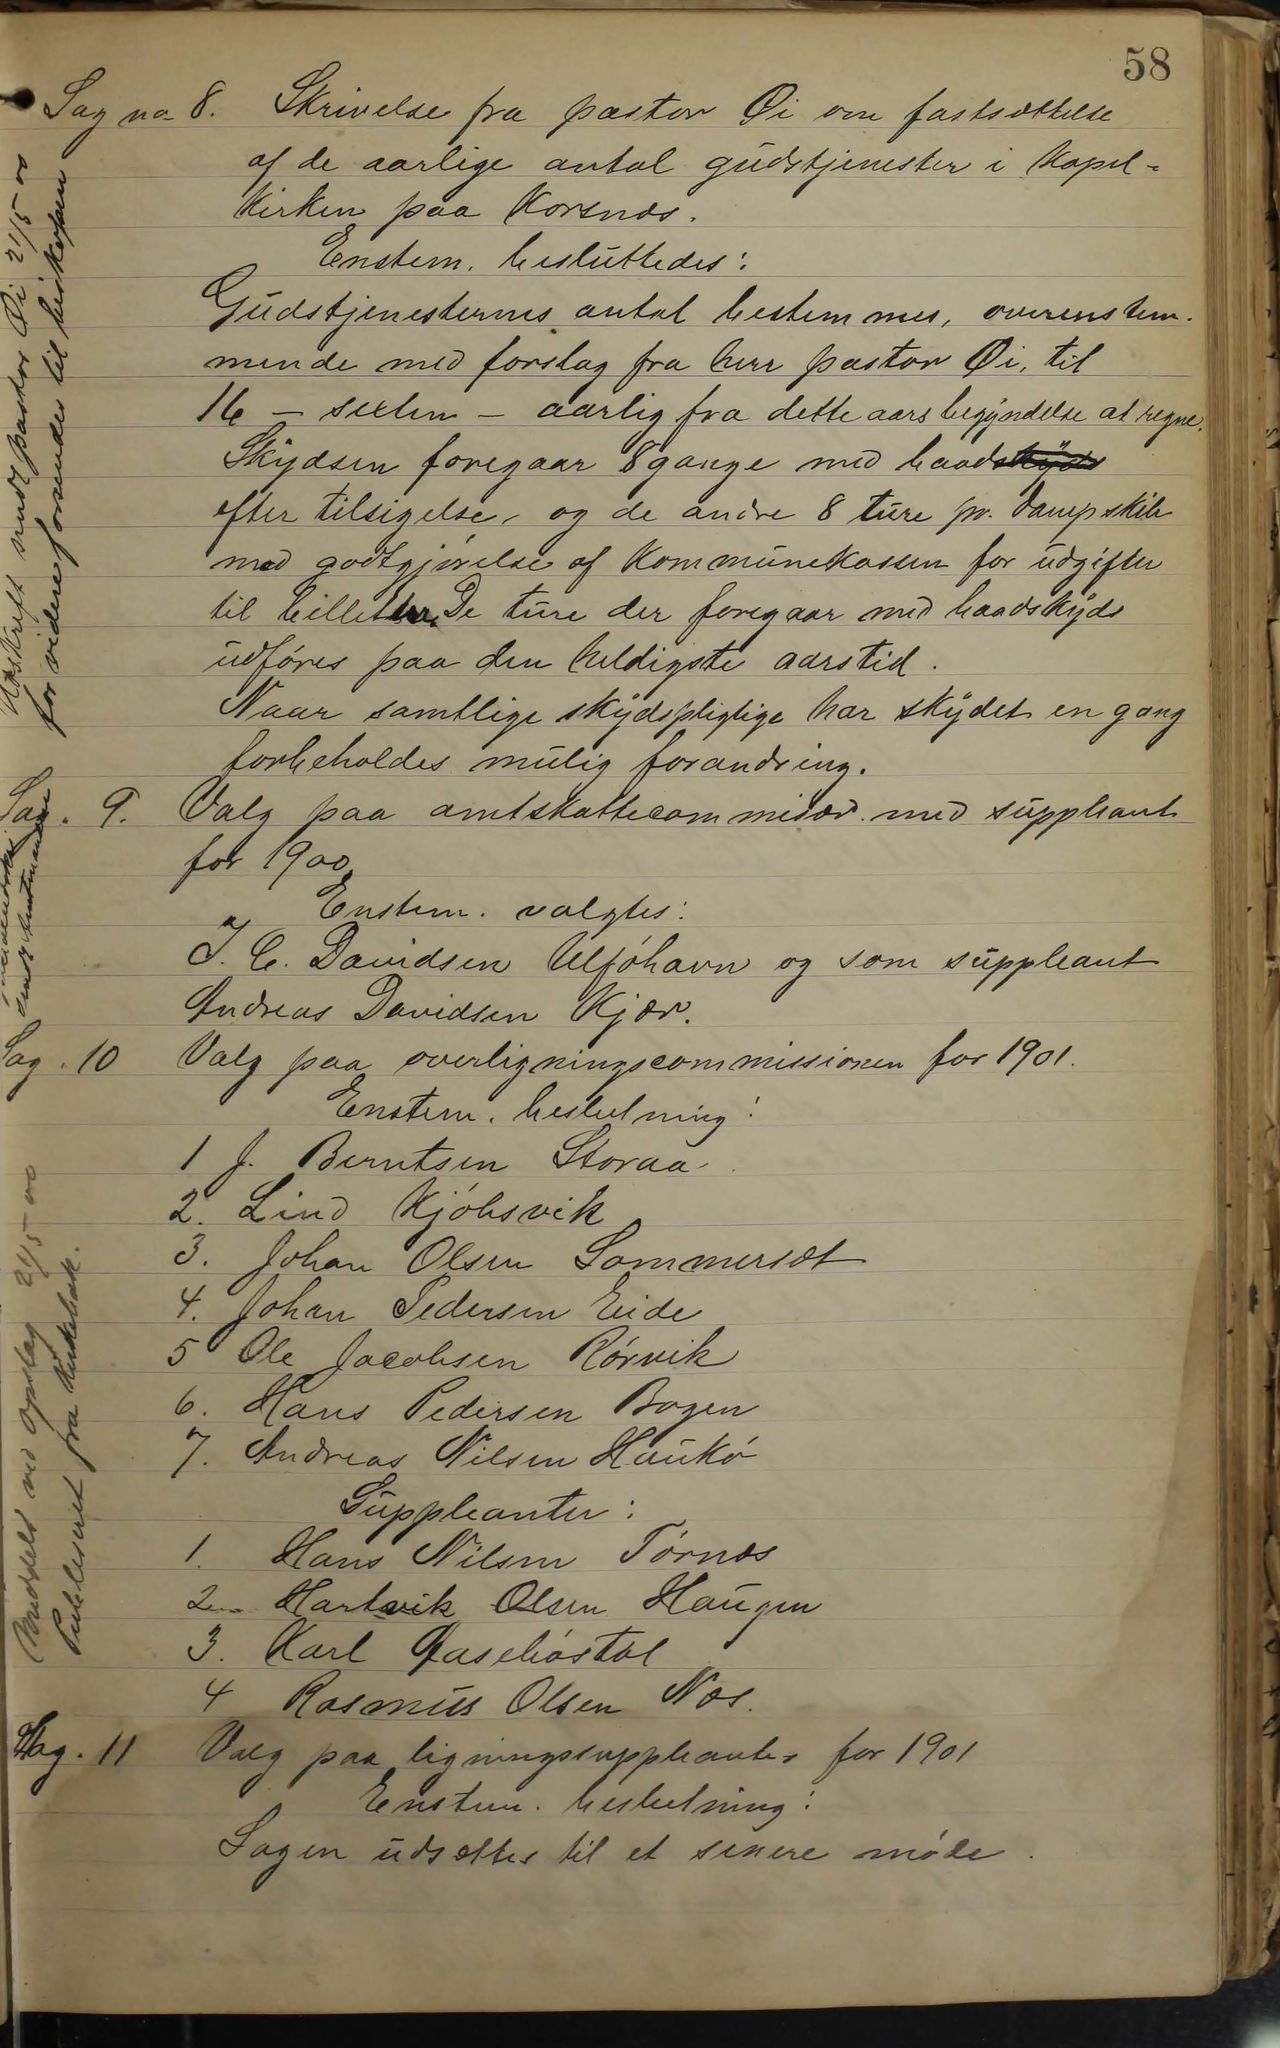 58
Sag no 8. Skrivelse fra pastor Øi om fastsættelse
af de aarlige antal gudstjenester i Kapel-
kirken paa Korsnæs.
Enstem. besluttedes:
Gudstjenesternes antal bestemmes, overenstem-
mende med forslag fra herr pastor Øi, til
16 - sexten - aarlig fra dette aars begyndelse at regne.
Skydsen foregaar 8 gange med baadskyds
efter tilsigelse, og de andre 8 ture pr. dampskib
med godtgjørelse af Kommunekassen for udgifter
til billetter. De ture der foregaar med baadskyds
udføres paa den heldigste aarstid.
Naar samtlige skydspligtige har skydset en gang
forbeholdes mulig forandring.
Udskrift sendt pastor Øi 21/5 00
for videre forsendes til biskopen
Sag. 9. Valg paa amtskattecommisær med suppleant
for 1900.
Enstem. valgtes:
J. C. Davidsen Ulføhavn og som suppleant
Andreas Davidsen Kjær.
sendt amtmanden
Sag. 10 Valg paa overligningscommissionen for 1901.
Enstem. beslutning:
1 J. Berntsen Storaa
2. Lind Kjøbsvik
3. Johan Olsen Sommersæt
4. Johan Pedersen Eide
5 Ole Jacobsen Rørvik
6. Hans Pedersen Bogen
7. Andreas Nilsen Haukø
Suppleanter:
1. Hans Nilsen Tørnæs
2. Hartvik Olsen Haugen
3. Karl
4 Rasmus Olsen Næs.
Meddelt ved opslag 21/5 00
Publiseret fra Kirkebak.
Sag. 11 Valg paa ligningssuppleanter for 1901
Enstem. beslutning:
Sagen udsættes til et senere møde.